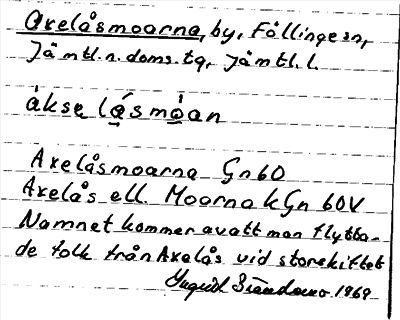 Axelåsmoarna, by, Föllinge sn,
Jämtl. n. doms. tg, Jämtl. l.
àkse lå̀smo̲an
Axelåsmoarna Gn 60
Axelås ell. Moarna kGn 60V
Namnet kommer av att man flytta-
de folk från Axelås vid storskiftet
Ingrid 1969